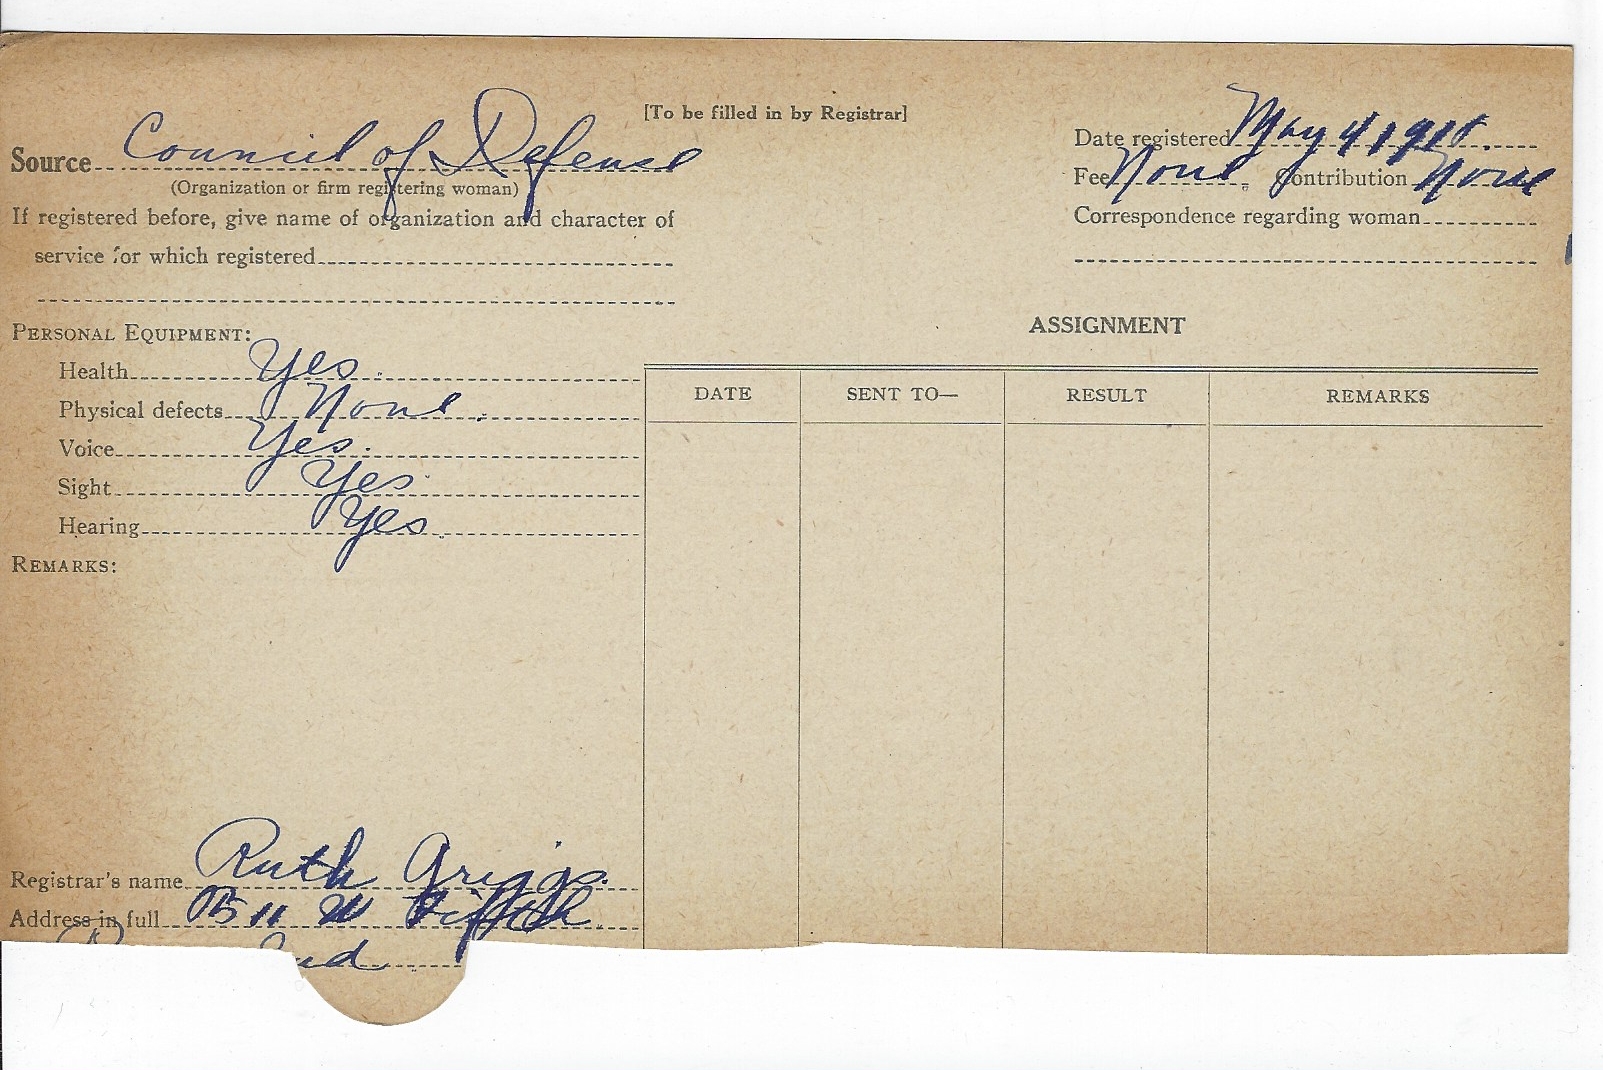 [To be filled in by Registrar]
Source Council of Defense
(Organization or firm registering woman)
If registered before, give name of organization and character of
service for which registered
Date registered May 4, 1918.
Fee None. Contribution None
Correspondence regarding woman
PERSONAL EQUIPMENT:
Health Yes.
Physical defects None.
Voice Yes.
Sight Yes
Hearing Yes.
REMARKS:
ASSIGNMENT
DATE SENT TO— RESULT REMARKS
Registrar's name Ruth Griggs.
Address in full 1511 W Fifth.
Ind